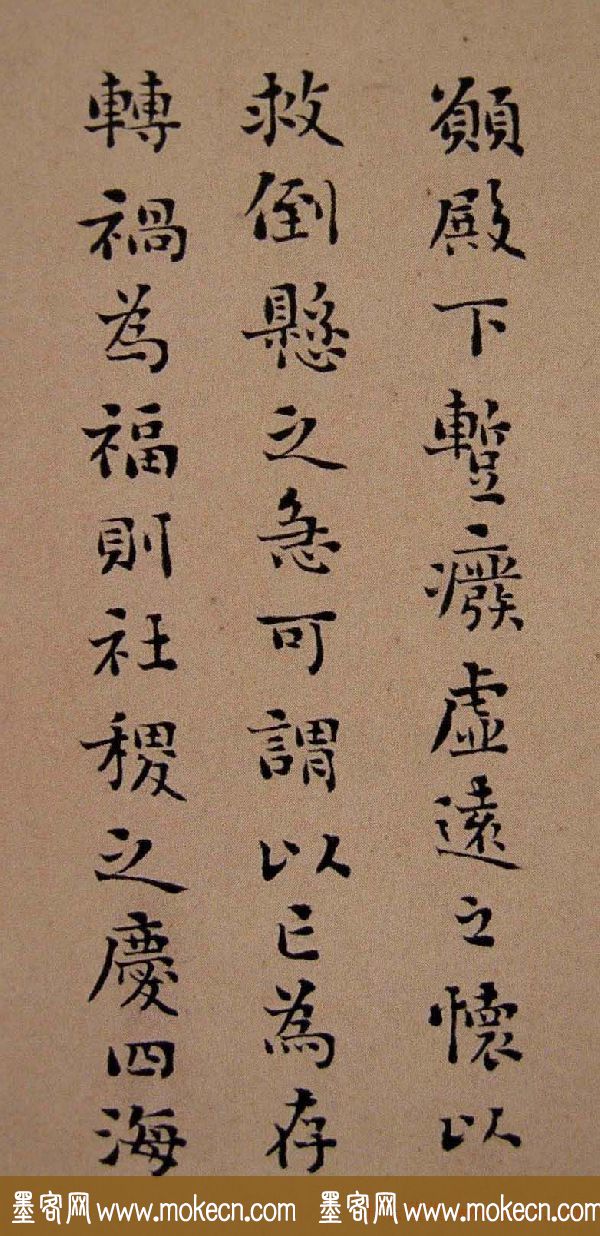 願殿下蹔癈虛遠之懷以
救倒懸之急可謂以亡為存
轉禍為福則社稷之慶四海
墨客网 www.mokecn.com 墨客网 www.mokecn.com